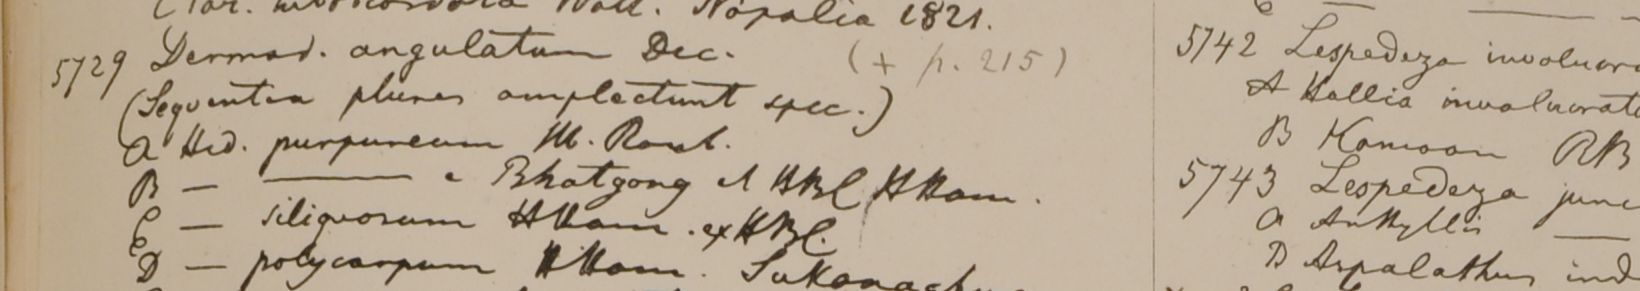 Wall. Napalia 1821.
5729 Desmod. angulatum Dec. (+ p. 215)
(Sequentia plures amplectunt spec.)
A Hed. purpureum H. Roxb.
B — ——— e Bhatgong et HBC HHam.
C — siliquosum HHam. ex HBC.
D — polycarpum HHam.
5742 Lespedeza involucra
A Hallia involucrata
B Kamoon RB
5743 Lespedeza junc
A Anthyllis ——
B Aspalathus ind